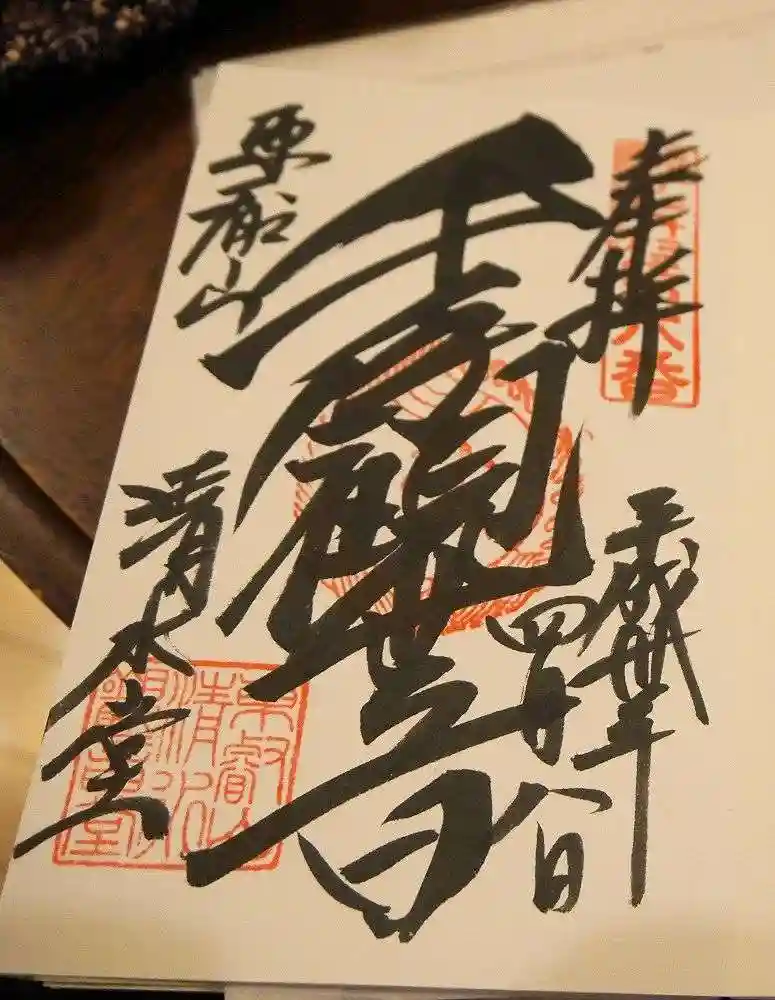 奉拝
平成卅年
四月八日
千手観世音
東叡山
清水堂
東叡山
清水